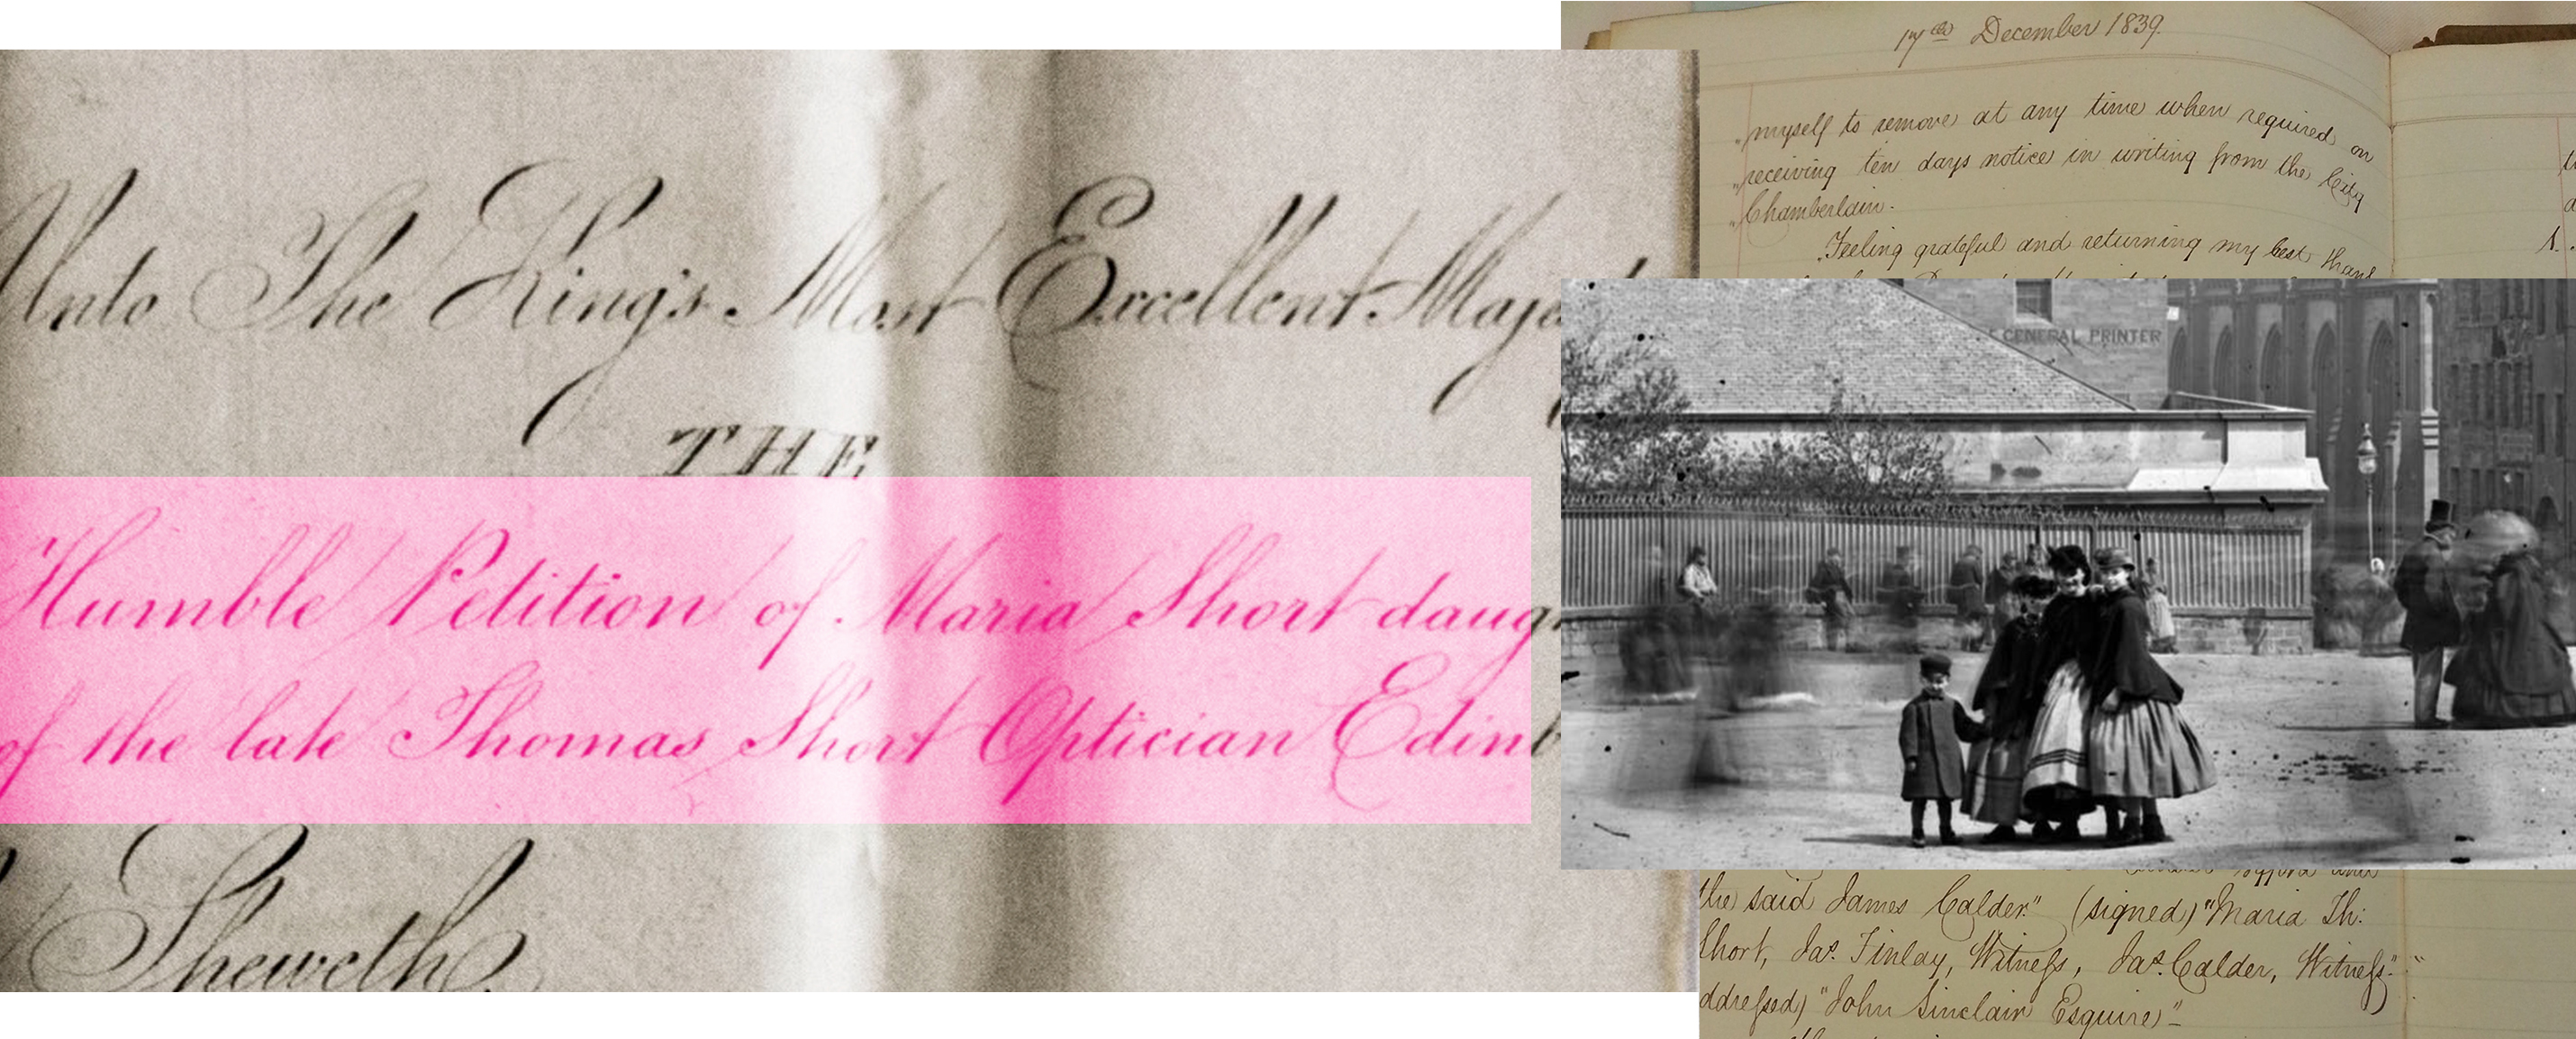 Unto The King's Most Excellent Maj
THE
Humble Petition of Maria Short daug
of the late Thomas Short Optician Edinb
Sheweth
17th December 1839.
"myself to remove at any time when required on
"receiving ten days notice in writing from the City
"Chamberlain.
"Feeling grateful and returning my best thank
GENERAL PRINTER
the said James Calder." (signed) "Maria Th:
Short, Jas. Finlay, Witness, Jas. Calder, Witness."
ddressed) "John Sinclair Esquire"